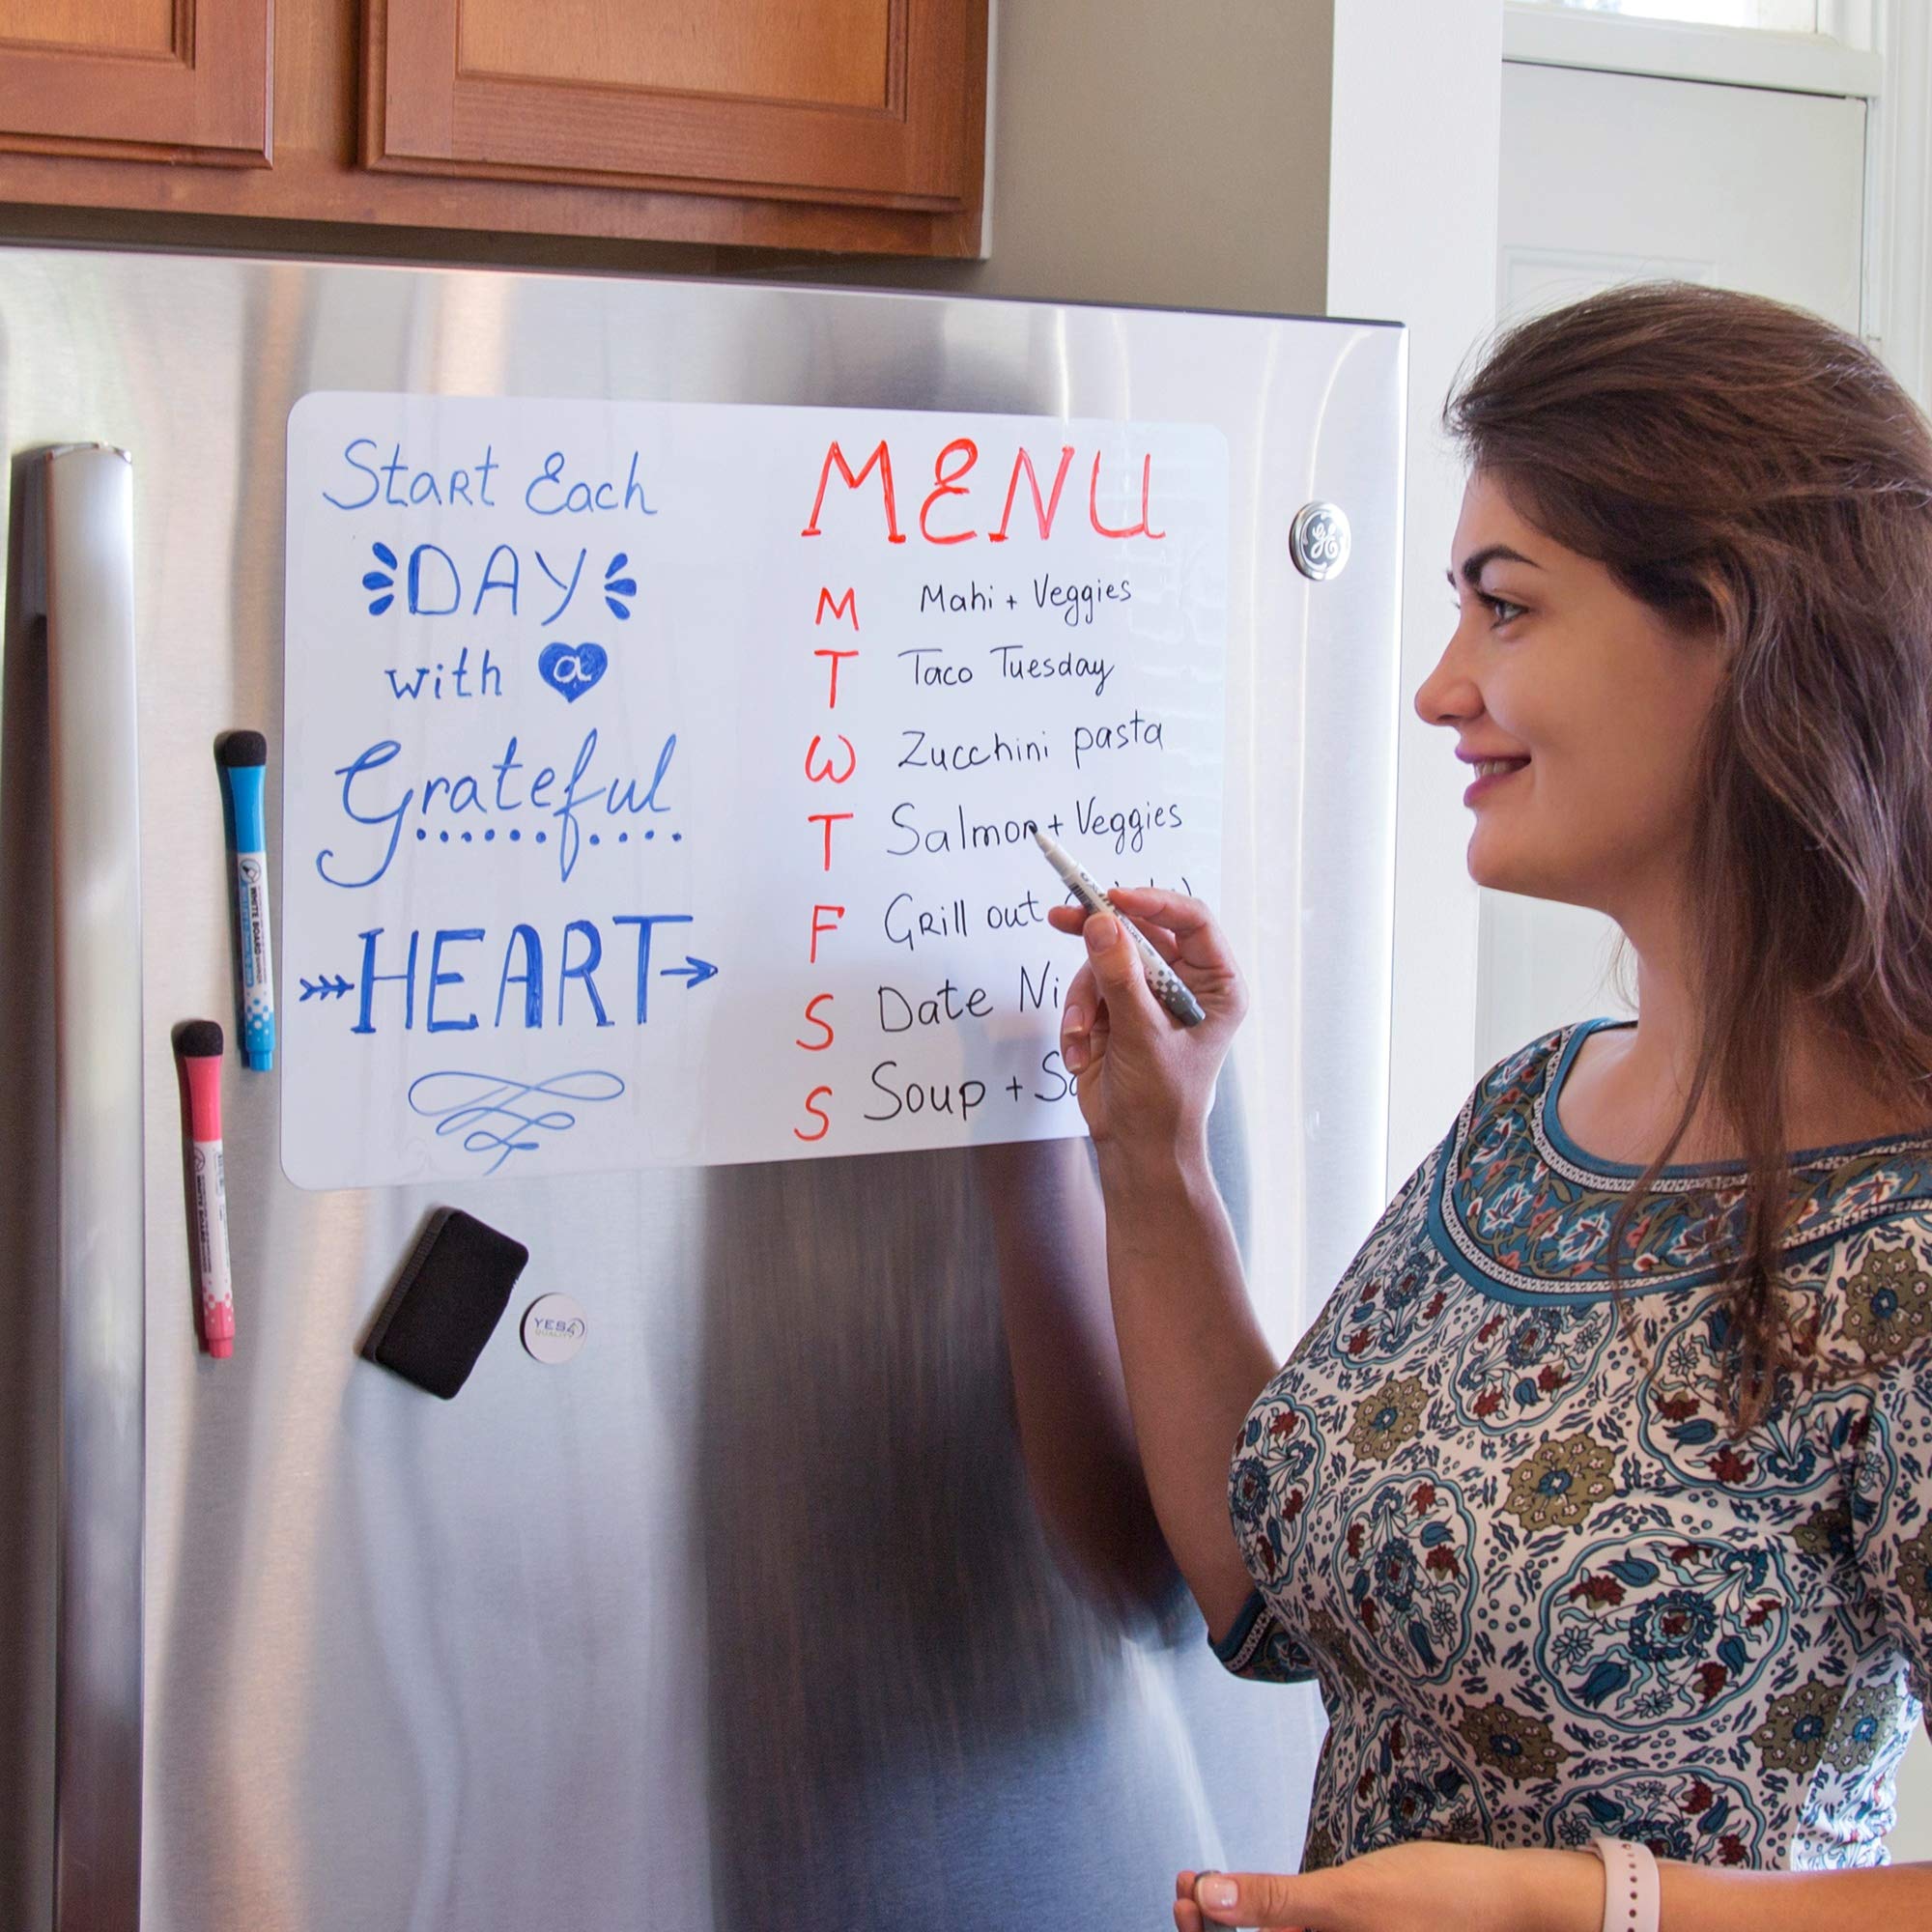 Start Each
DAY
with a
Grateful
HEART
MENU
M Mahi + Veggies
T Taco Tuesday
W Zucchini pasta
T Salmon + Veggies
F Grill out
S Date
S Soup +
WHITE BOARD
YES4
QUALITY
GE